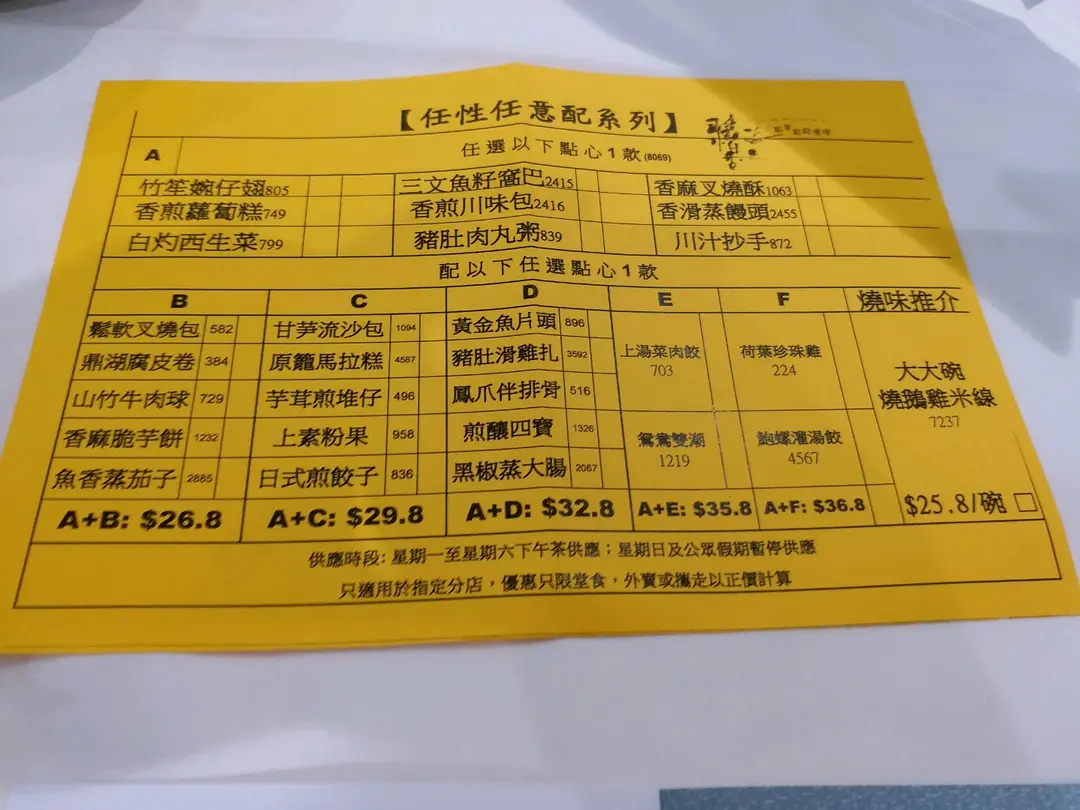 【任性任意配系列】
A 任選以下點心1款(8069)
竹笙婉仔翅805 三文魚籽窩巴2415 香麻叉燒酥1063
香煎蘿蔔糕749 香煎川味包2416 香滑蒸饅頭2455
白灼西生菜799 豬肚肉丸粥839 川汁抄手872
配以下任選點心1款
B C D E F 燒味推介
鬆軟叉燒包 582 甘筍流沙包 1094 黃金魚片頭 896
鼎湖腐皮卷 384 原籠馬拉糕 4587 豬肚滑雞扎 3592 上湯菜肉餃 荷葉珍珠雞
703 224
山竹牛肉球 729 芋茸煎堆仔 496 鳳爪伴排骨 516 大大碗
燒鵝雞米線
7237
香麻脆芋餅 1232 上素粉果 958 煎釀四寶 1326 鴛鴦雙潮 鮑螺灌湯餃
1219 4567
魚香蒸茄子 2885 日式煎餃子 836 黑椒蒸大腸 2067
A+B: $26.8 A+C: $29.8 A+D: $32.8 A+E: $35.8 A+F: $36.8 $25.8/碗
供應時段: 星期一至星期六下午茶供應；星期日及公眾假期暫停供應
只適用於指定分店，優惠只限堂食，外賣或攜走以正價計算